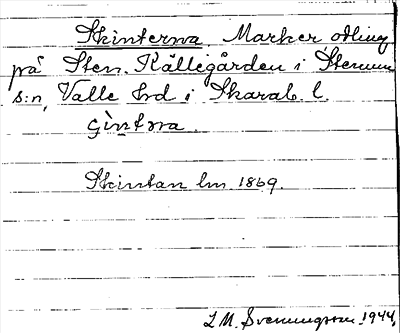 Skinterna. Marker odling
på Sten. Källegården i Stenum
s:n, Valle hd i Skarab. l.
Skintan lm 1869.
L M. Svenungsson 1944.